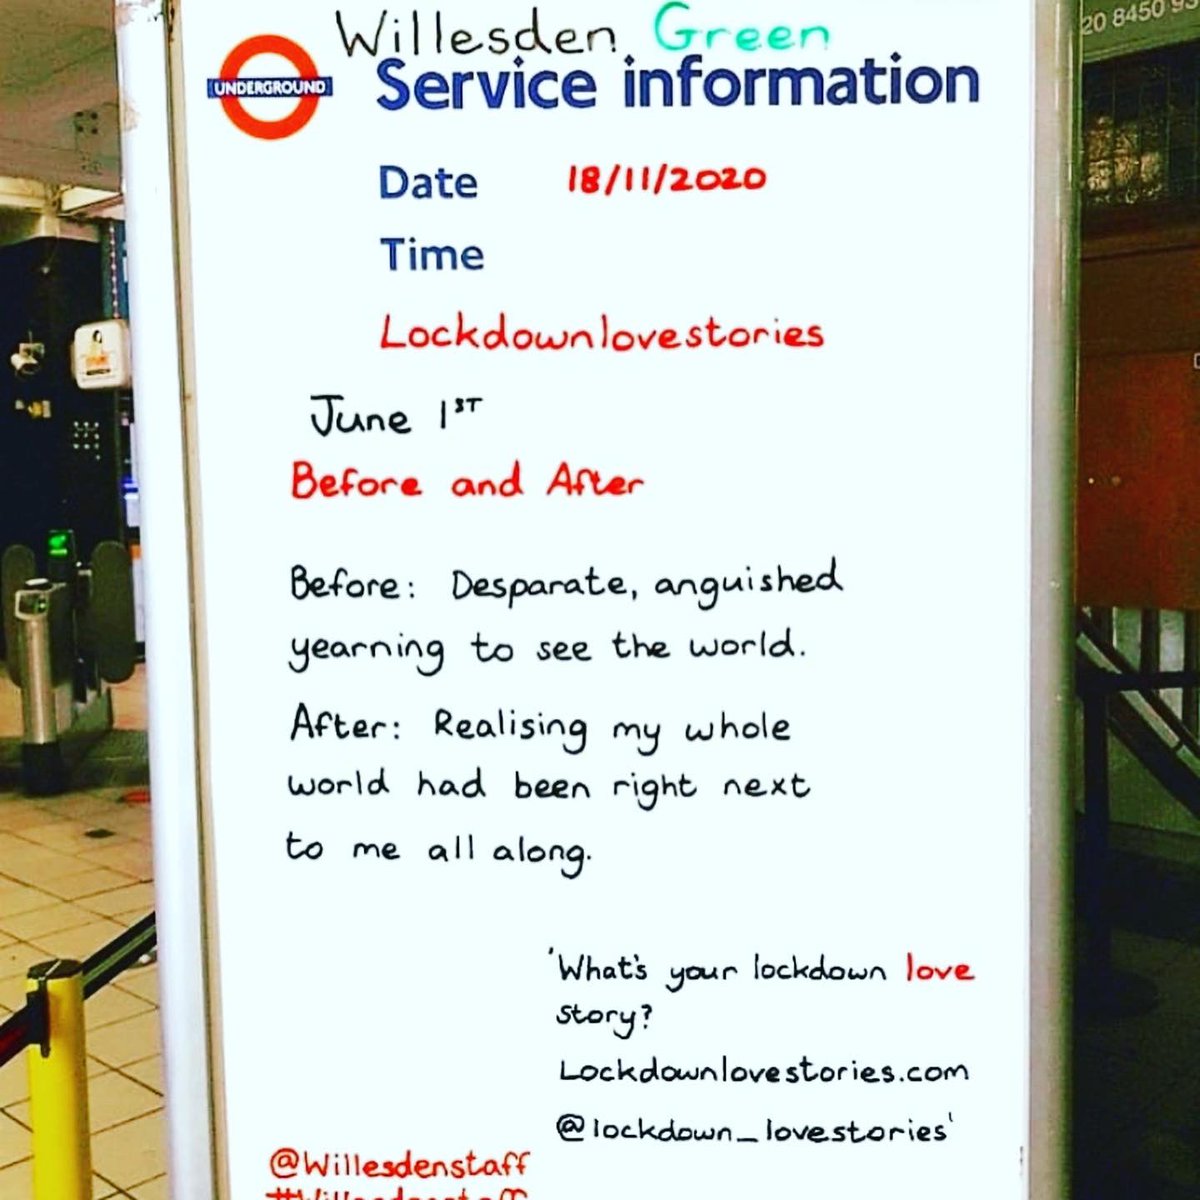 Willesden Green
UNDERGROUND
Service information
Date 18/11/2020
Time
Lockdownlovestories
June 1ST
Before and After
Before: Desparate, anguished
yearning to see the world.
After: Realising my whole
world had been right next
to me all along.
'What's your lockdown love
story?
Lockdownlovestories.com
@lockdown_lovestories'
@Willesdenstaff
20 8450 93